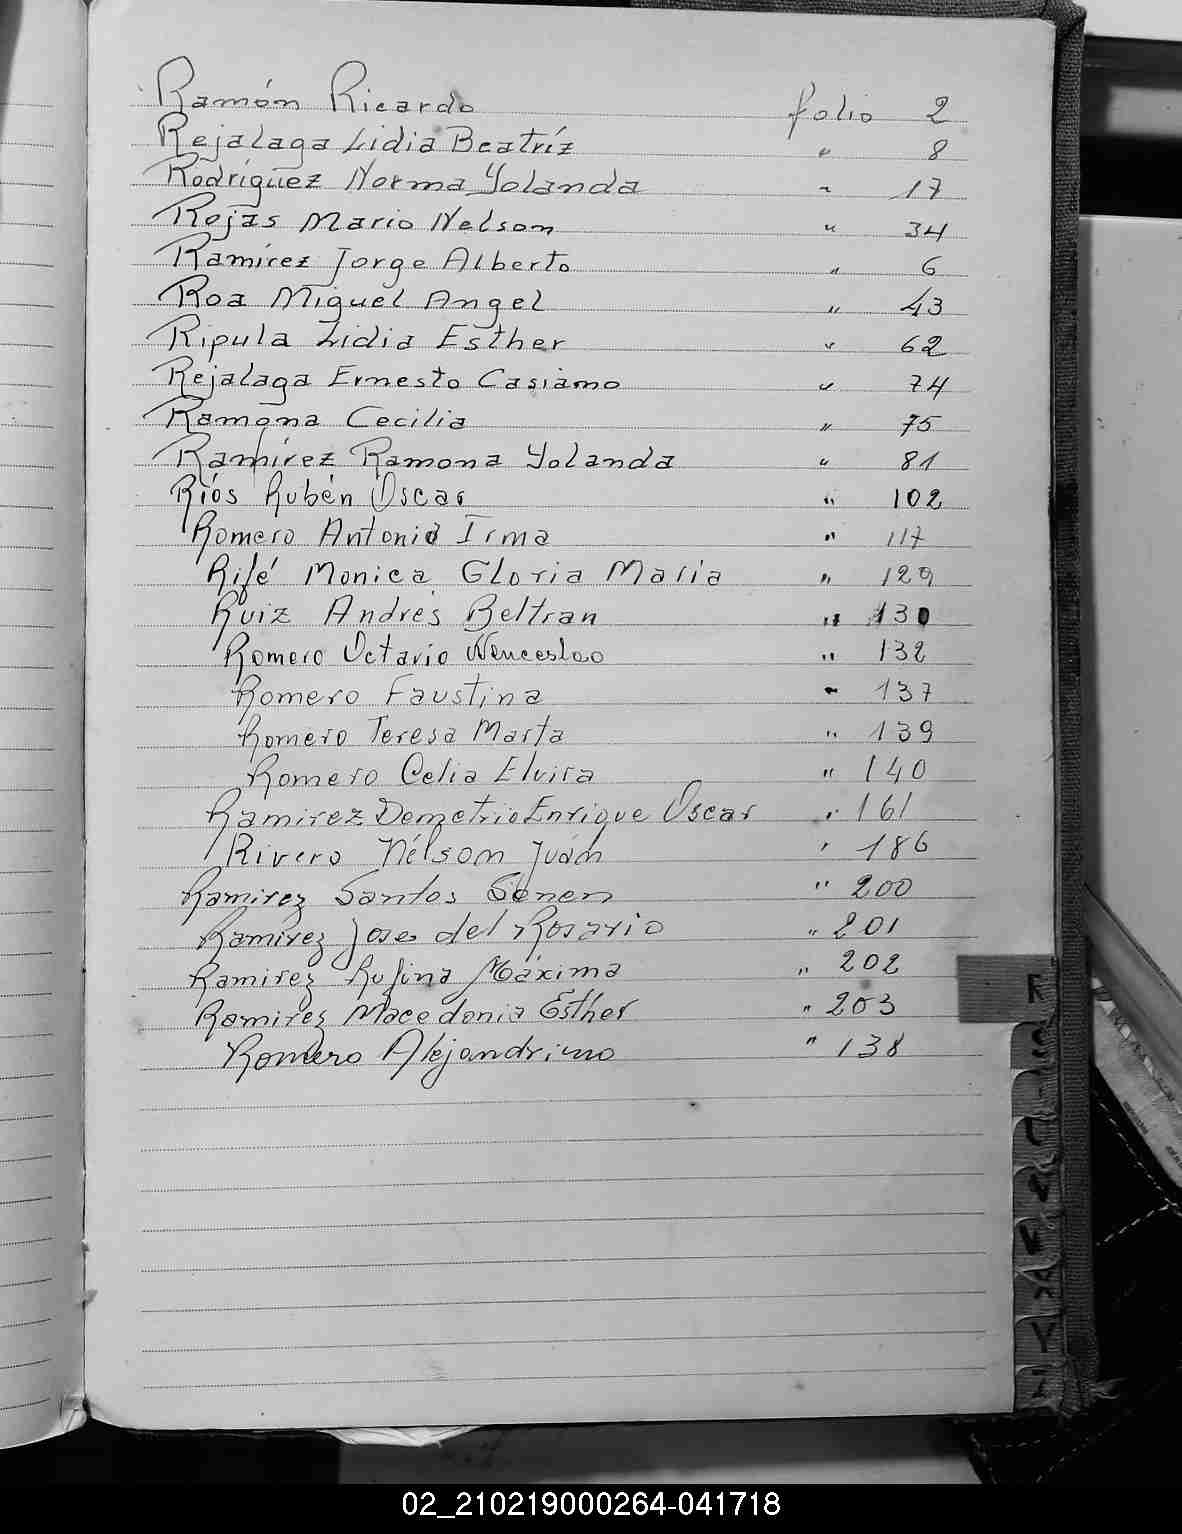 Ramón Ricardo folio 2
Rejalaga Lidia Beatríz " 8
Rodríguez Norma Yolanda " 17
Rojas Mario Nelson " 34
Ramírez Jorge Alberto " 6
Roa Miguel Angel " 43
Ripula Lidia Esther " 62
Rejalaga Ernesto Casiamo " 74
Ramona Cecilia " 75
Ramírez Ramona Yolanda " 81
Ríos Rubén Oscar " 102
Romero Antonia Irma " 117
Rifé Monica Gloria Maria " 129
Ruiz Andrés Beltran " 130
Romero Octavio Wenceslao " 132
Romero Faustina " 137
Romero Teresa Marta " 139
Romero Celia Elvira " 140
Ramirez Demetrio Enrique Oscar " 161
Rivero Nélson Juán " 186
Ramirez Santos Senen " 200
Ramirez Jose del Rosario " 201
Ramirez Rufina Máxima " 202
Ramirez Macedonia Esther " 203
Romero Alejandrino " 138
R
02_210219000264-041718